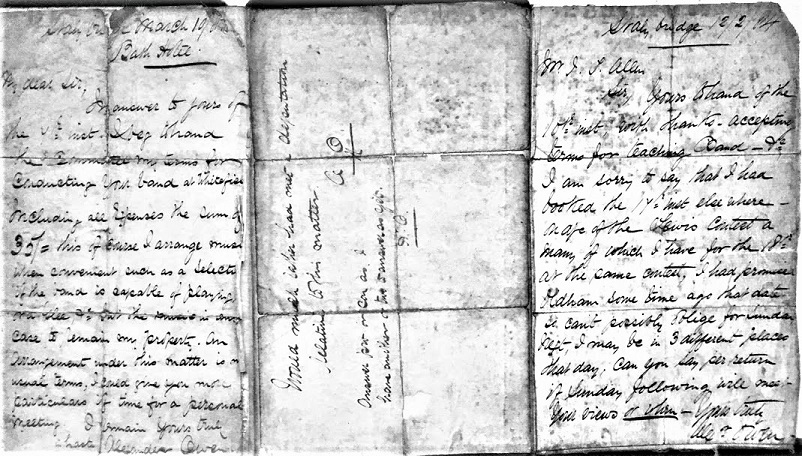 March 19
Bath Hotel
My dear Sir,
In answer to yours of
the inst. I beg to hand
the Committee my terms for
Conducting your band at Whitefield
including all Expenses the sum of
35/= this of course I arrange music
when convenient such as a selection
if the band is capable of playing
but the music in any
case to remain my property. An
arrangement under this matter is on
usual terms, I could give you more
particulars if time for a personal
meeting I remain Yours truly
Alexander Owen
Would much rather had met a deputation
relative to this matter
A O.
Answer per return as I
have another or two to answer
A. O.
Stalybridge 12/2/84
Mr J. P. Allen
Sir, Yours to hand of the
10th inst, with thanks accepting
terms for teaching Band - &c
I am sorry to say that I had
booked the 17th inst elsewhere -
of the Contest a
many of which I have for the 18th
at the same contest, I had promised
Oldham some time ago that date
so can't possibly oblige for Sunday
next, I may be in 3 different places
that day, Can you say per return
if Sunday following will meet
Your views or when - Yours truly
Alexr Owen